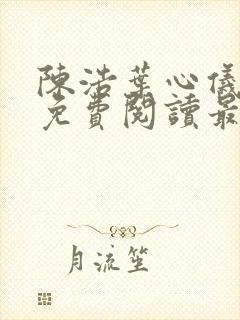 陳浩葉心儀
免費閱讀最
月流笙